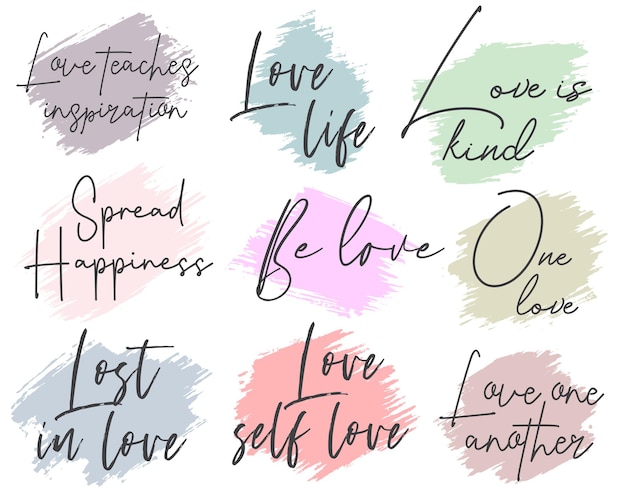 Love teaches
inspiration
Love
life
Love is
kind
Spread
Happiness
Be love
One
love
Lost
in love
Love
self love
Love one
another